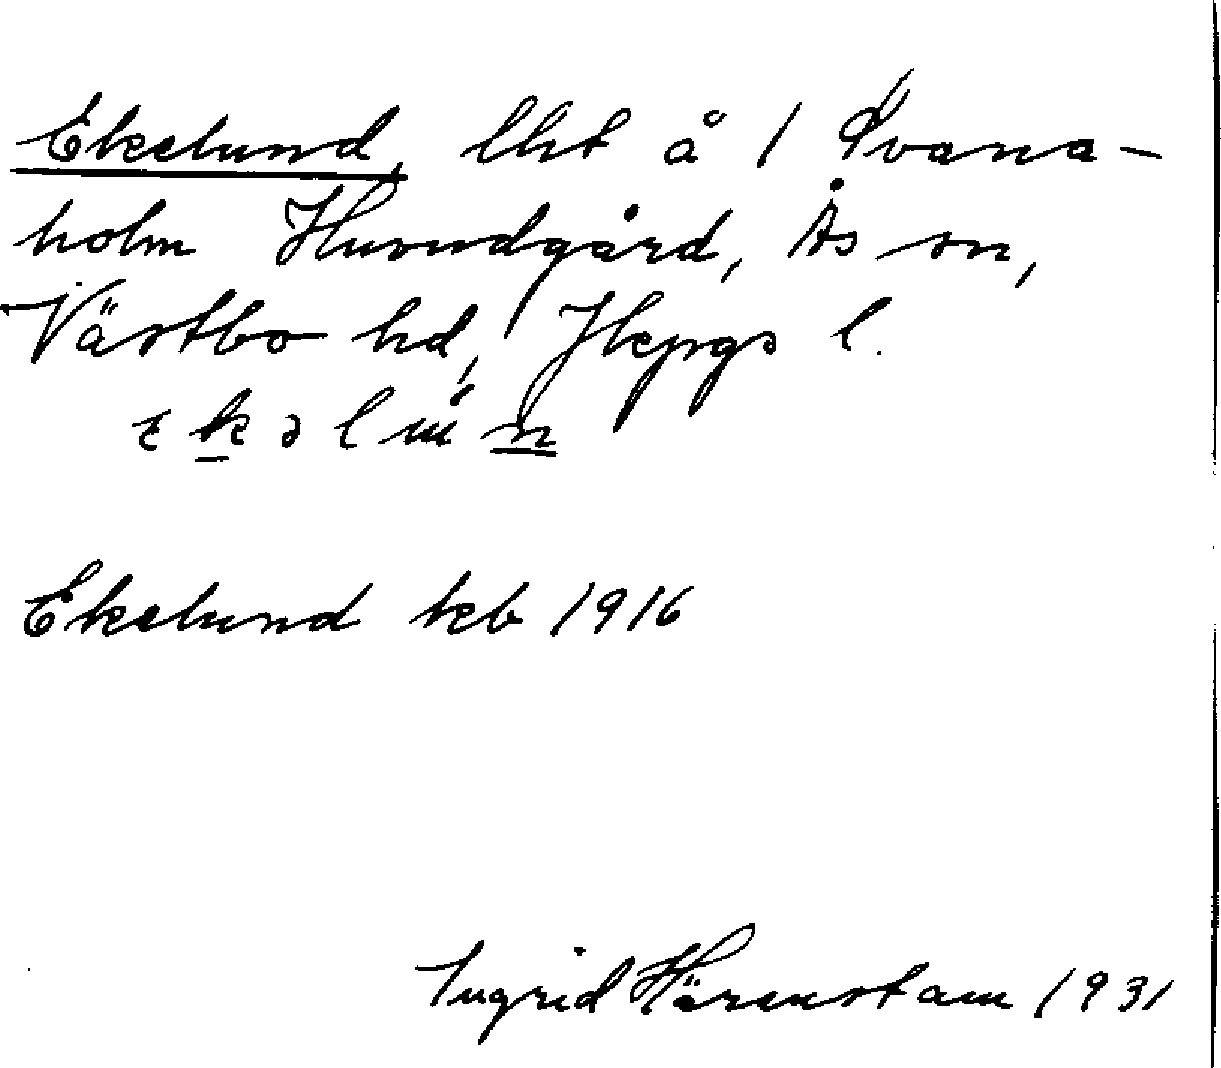 Ekelund, lht å 1 Svana-
holm Huvudgård, Ås sn,
Västbo hd, Jkpgs l.
ɛkəlɯn
Ekelund kb 1916
Ingrid Härenstam 1931